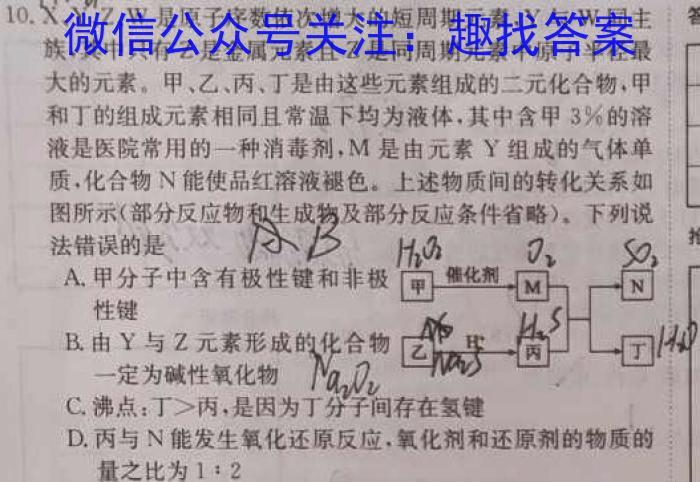 10. X、Y、Z、W 是原子序数依次增大的短周期元素,Y 与 W 同主
微信公众号关注：趣找答案
族,其中只有 Z 是金属元素且 Z 是同周期元素中原子半径最
大的元素。甲、乙、丙、丁是由这些元素组成的二元化合物,甲
和丁的组成元素相同且常温下均为液体,其中含甲 3%的溶
液是医院常用的一种消毒剂,M 是由元素 Y 组成的气体单
质,化合物 N 能使品红溶液褪色。上述物质间的转化关系如
图所示(部分反应物和生成物及部分反应条件省略)。下列说
法错误的是 A B
A. 甲分子中含有极性键和非极
性键
B. 由 Y 与 Z 元素形成的化合物
一定为碱性氧化物 Na₂O₂
H₂O₂ O₂ SO₂
甲 催化剂 M N
H₂S H₂O
乙 Na₂S H⁺ 丙 丁
C. 沸点:丁>丙,是因为丁分子间存在氢键
D. 丙与 N 能发生氧化还原反应,氧化剂和还原剂的物质的
量之比为 1∶2